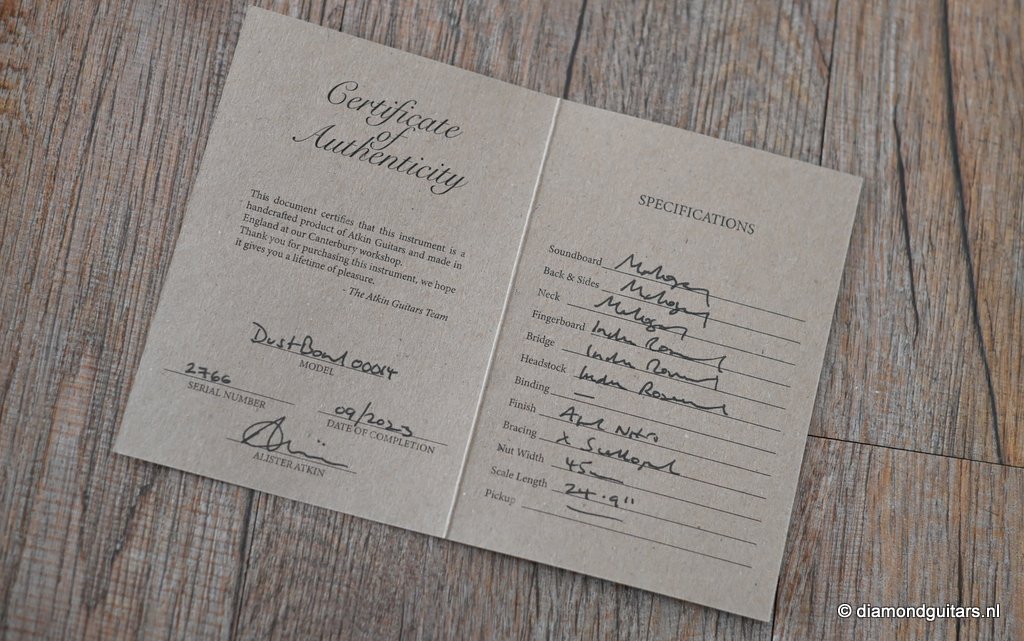 Certificate
of
Authenticity
This document certifies that this instrument is a
handcrafted product of Atkin Guitars and made in
England at our Canterbury workshop.
Thank you for purchasing this instrument, we hope
it gives you a lifetime of pleasure.
- The Atkin Guitars Team
DustBowl 00014
MODEL
2766
SERIAL NUMBER
09/2023
DATE OF COMPLETION
ALISTER ATKIN
SPECIFICATIONS
Soundboard Mahogany
Back & Sides Mahogany
Neck Mahogany
Fingerboard Indian Rosewood
Bridge Indian Rosewood
Headstock Indian Rosewood
Binding —
Finish Nitro
Bracing X Scalloped
Nut Width 45mm
Scale Length 24.9"
Pickup
© diamondguitars.nl